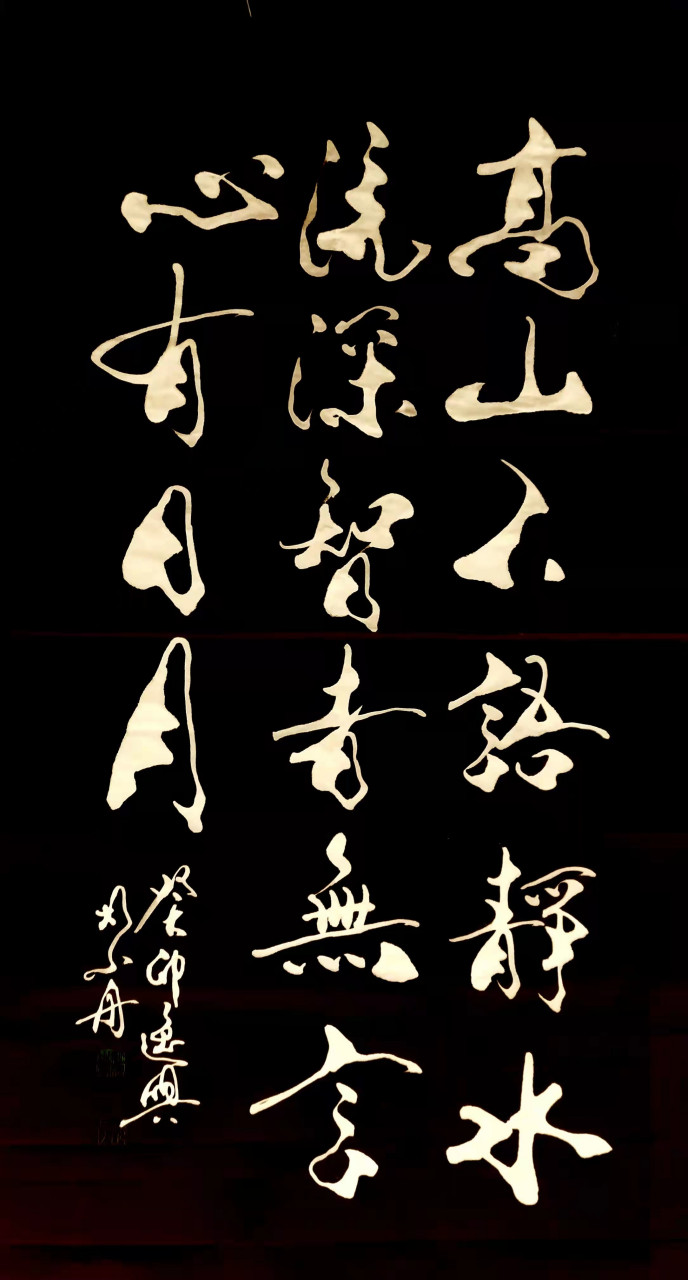 高山不語靜水
流深智者無言
心有日月
癸卯遣興
小丹